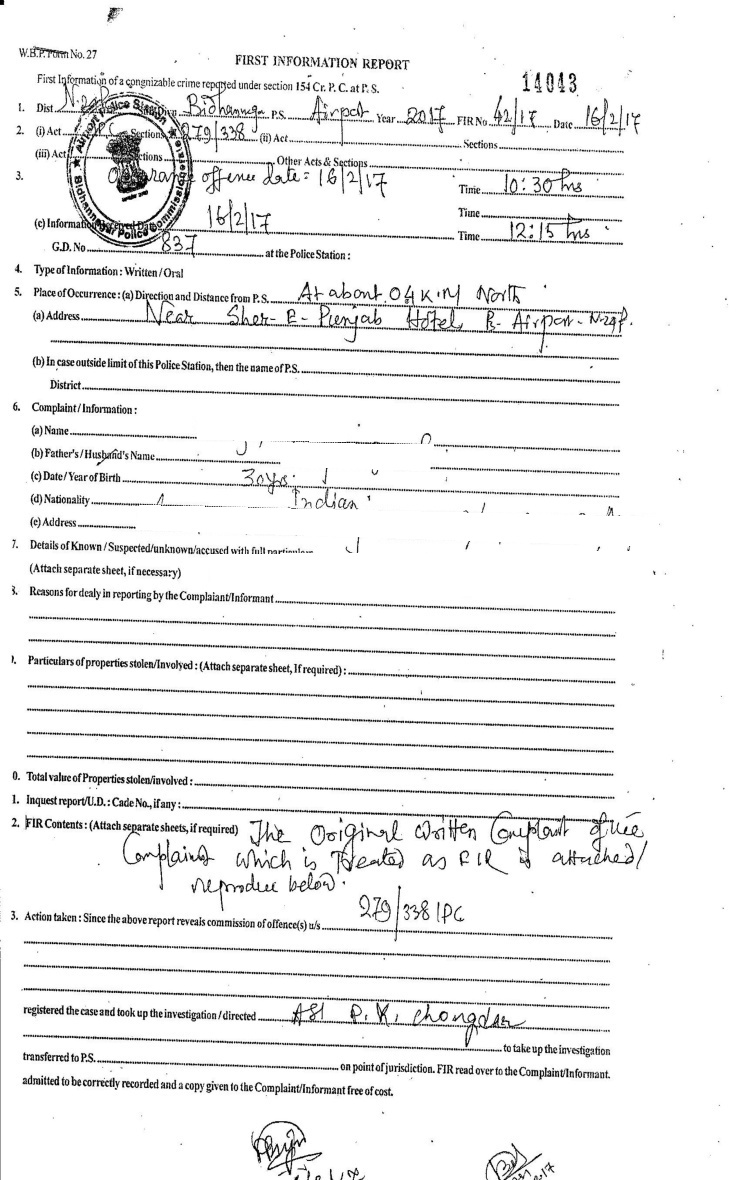 W.B.P. Form No. 27
FIRST INFORMATION REPORT
First Information of a congnizable crime reported under section 154 Cr. P. C. at P. S.
14043
1. Dist. N-24 Divn. Bidhannaga P.S. Airport Year 2017 FIR No. 42/17 Date 16/2/17
2. (i) Act Sections 279/338 (ii) Act Sections
(iii) Act Sections Other Acts & Sections
Airport Police Station
Bidhannagar Police Commissionerate
3. offence date = 16/2/17 Time 10:30 hrs
Time
(c) Information Date 16/2/17 Time 12:15 hrs
G.D. No 837 at the Police Station :
4. Type of Information : Written / Oral
5. Place of Occurrence : (a) Direction and Distance from P.S. At about 04 K.M North
(a) Address Near Sher-E-Punjab Hotel Airport
(b) In case outside limit of this Police Station, then the name of P.S.
District
6. Complaint / Information :
(a) Name
(b) Father's / Husband's Name
(c) Date / Year of Birth 30yrs.
(d) Nationality Indian
(e) Address
7. Details of Known / Suspected/unknown/accused with full particulars
(Attach separate sheet, if necessary)
8. Reasons for dealy in reporting by the Complaiant/Informant
9. Particulars of properties stolen/Involyed : (Attach separate sheet, If required) :
0. Total value of Properties stolen/involved :
1. Inquest report/U.D. : Cade No., if any :
2. FIR Contents : (Attach separate sheets, if required) The Original Written Complaint of the
Complaint which is Treated as FIR is attached/
reproduce below.
3. Action taken : Since the above report reveals commission of offence(s) u/s 279/338 IPC
registered the case and took up the investigation / directed ASI P. K. Chongdar
to take up the investigation
transferred to P.S. on point of jurisdiction. FIR read over to the Complaint/Informant.
admitted to be correctly recorded and a copy given to the Complaint/Informant free of cost.